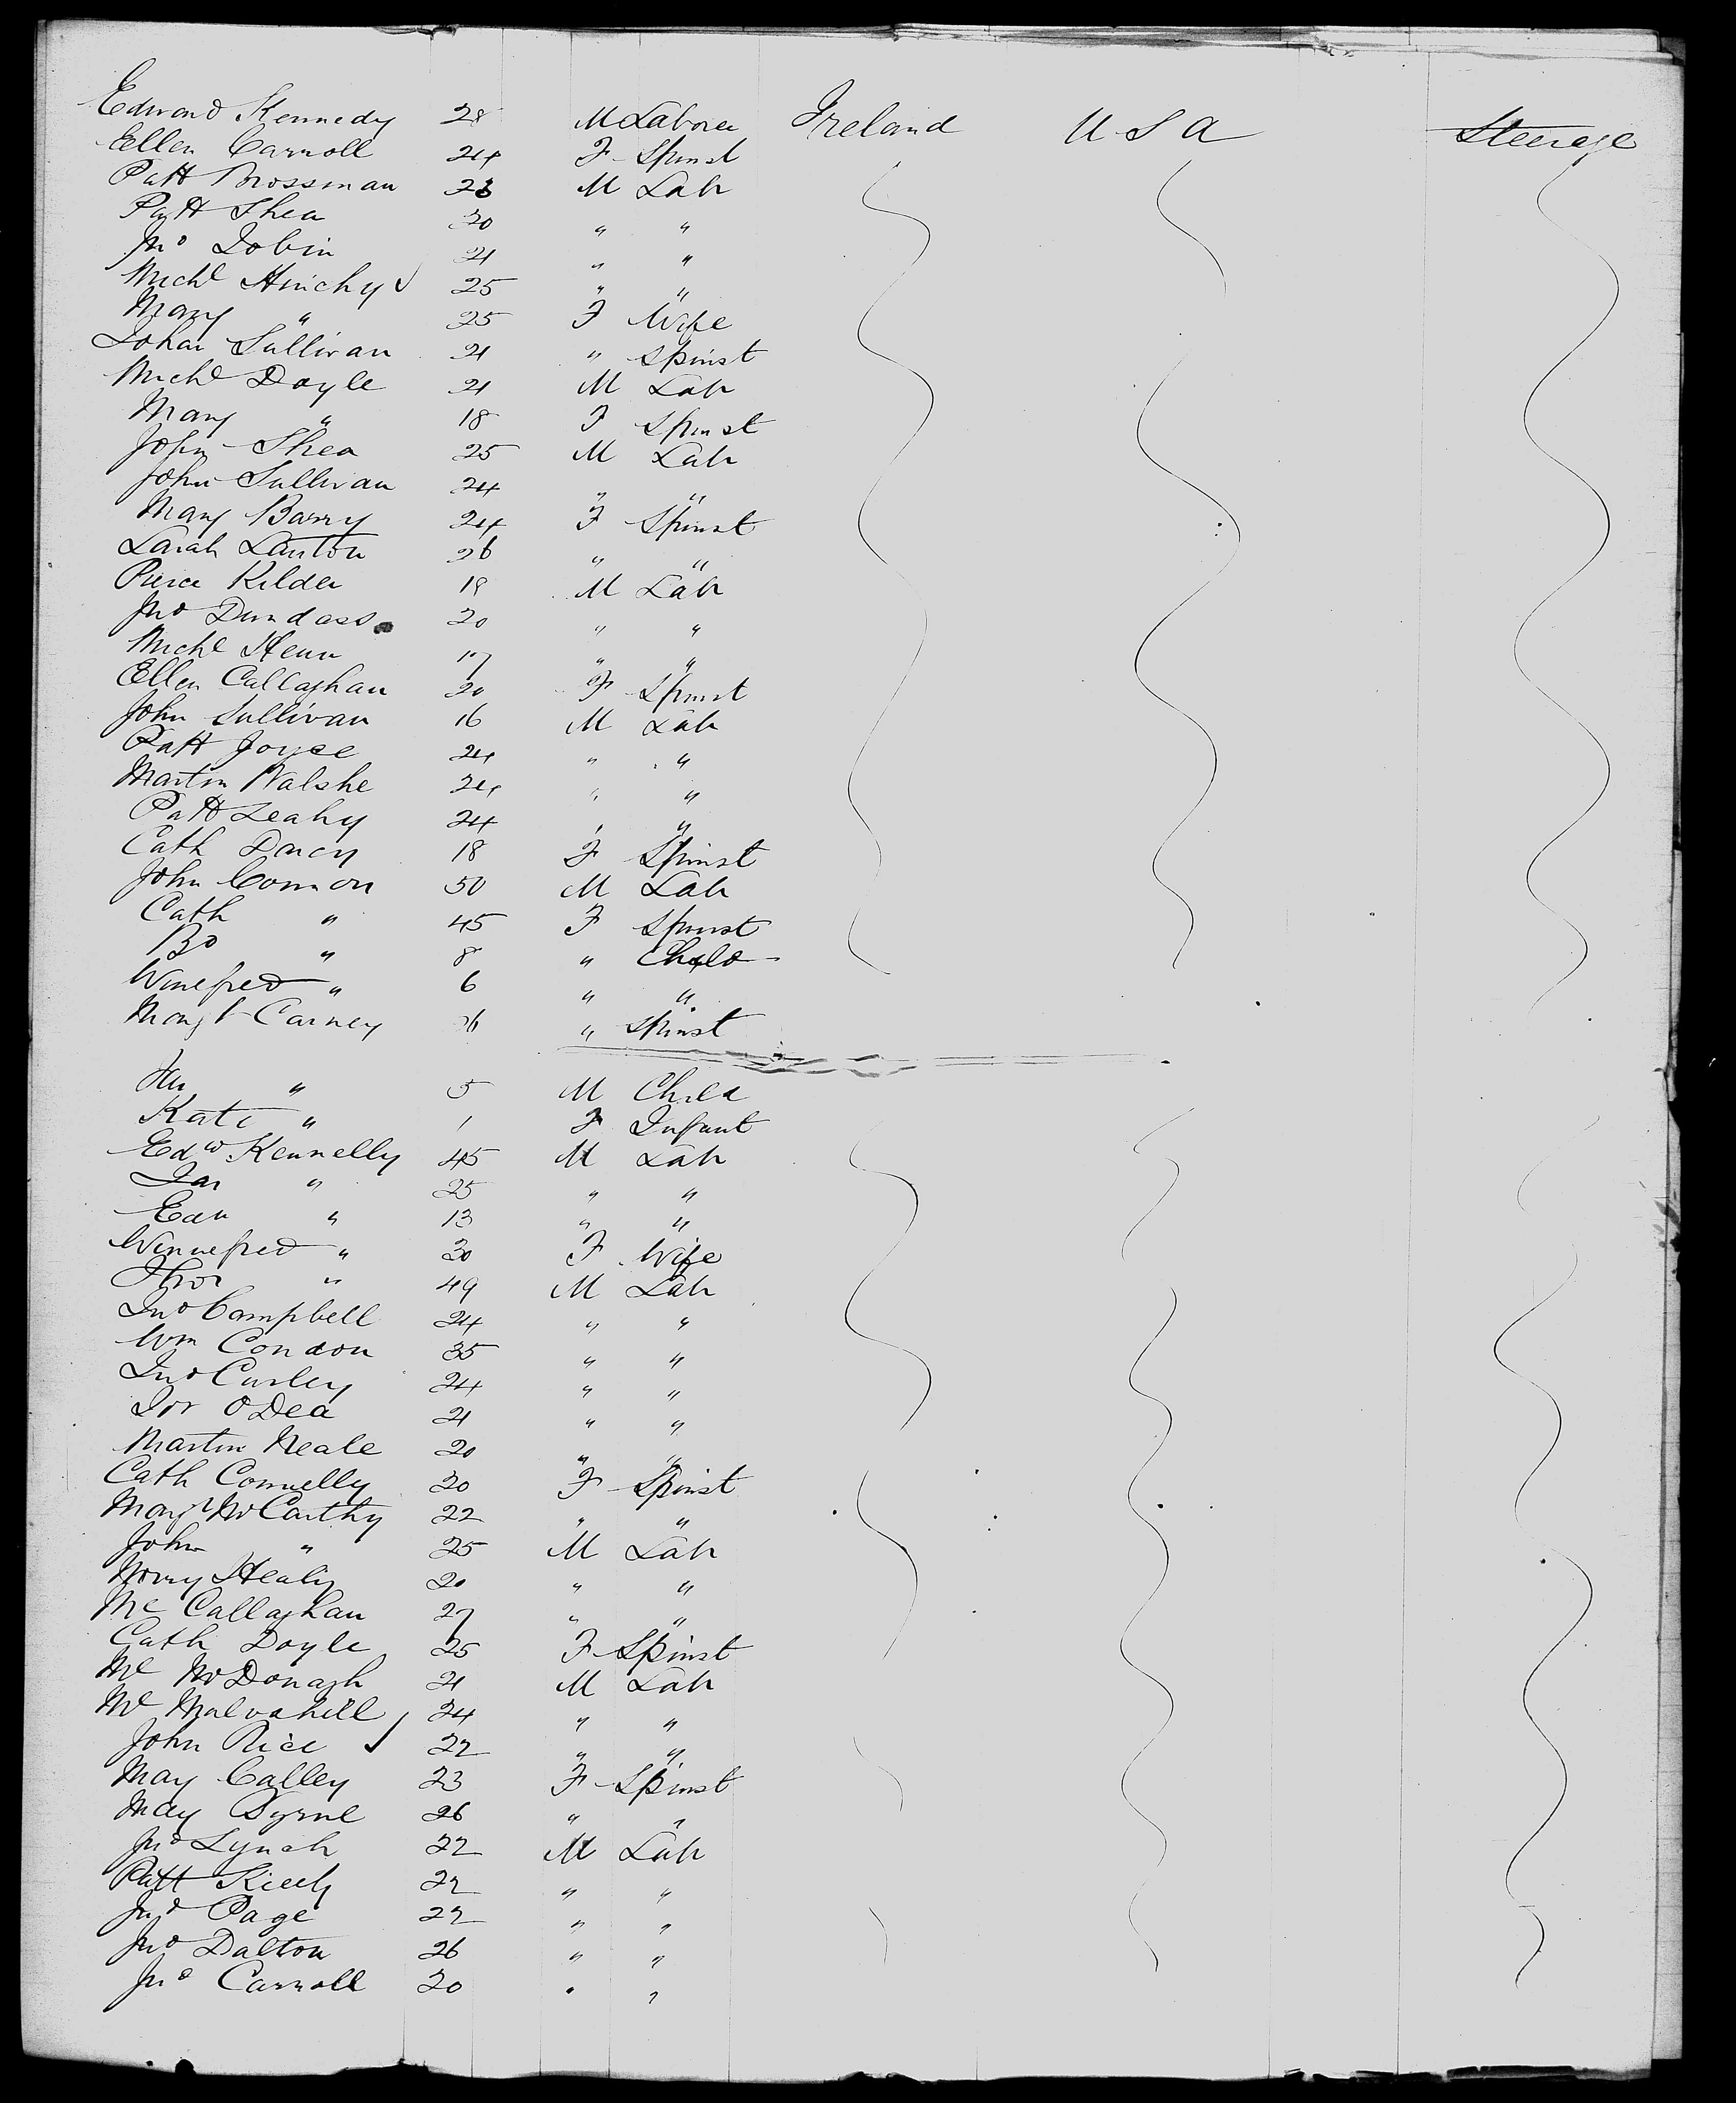 Edward Kennedy 28 M Laborer Ireland U S A Steerage
Ellen Carroll 24 F Spinst
Patt Brossman 23 M Lab
Patt Shea 30 " "
Jno Tobin 21 " "
Michl Hinchy 25 " "
Mary " 25 F Wife
Johan Sullivan 21 " Spinst
Michl Doyle 21 M Lab
Mary " 18 F Spinst
John Shea 25 M Lab
John Sullivan 24 " "
Mary Barry 24 F Spinst
Sarah 26 " "
Pierce 18 M Lab
Jno Dundass 20 " "
Michl Henn 17 " "
Ellen Callaghan 20 F Spinst
John Sullivan 16 M Lab
Patt Joyce 24 " "
Martin Walshe 24 " "
Patt Leahy 24 " "
Cath Darcy 18 F Spinst
John Connon 50 M Lab
Cath " 45 F Spinst
Bd " 8 " Child
Winefred " 6 " "
Margt Carney " Spinst
" 5 M Child
Kate " 1 F Infant
Edwd Kennelly 45 M Lab
Jas " 25 " "
" 13 " "
Winnefred " 30 F Wife
Thos " 49 M Lab
Jno Campbell 24 " "
Wm Condon 35 " "
Jno Curley 24 " "
O Dea 21 " "
Martin Neale 20 " "
Cath Connelly 20 F Spinst
Margt McCarthy 22 " "
John " 25 M Lab
Healy 20 " "
Ml Callaghan 27 " "
Cath Doyle 25 F Spinst
Ml McDonagh 21 M Lab
Ml Mulvahill 24 " "
John Rice 22 " "
May Calley 23 F Spinst
May Byrne 26 " "
Jno Lynch 22 M Lab
Patt Kiely 22 " "
Jno Page 22 " "
Jno Dalton 26 " "
Jno Carroll 20 " "